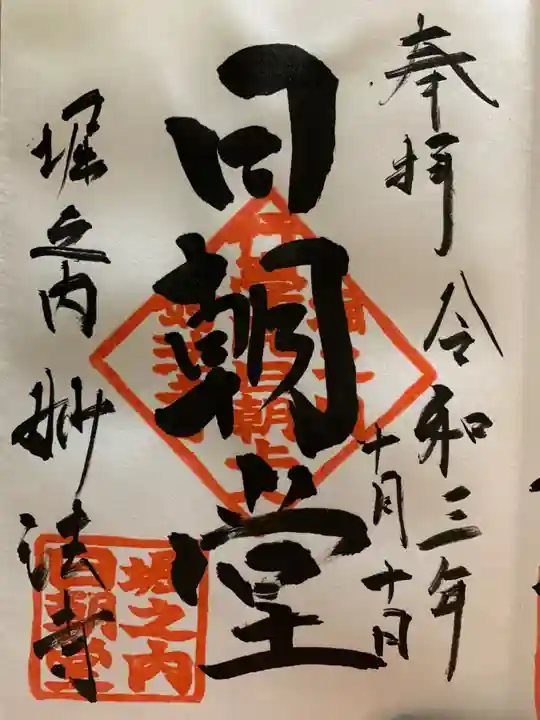 奉拝 令和三年
十月十日
日朝堂
堀之内 妙法寺
堀之内
日朝堂